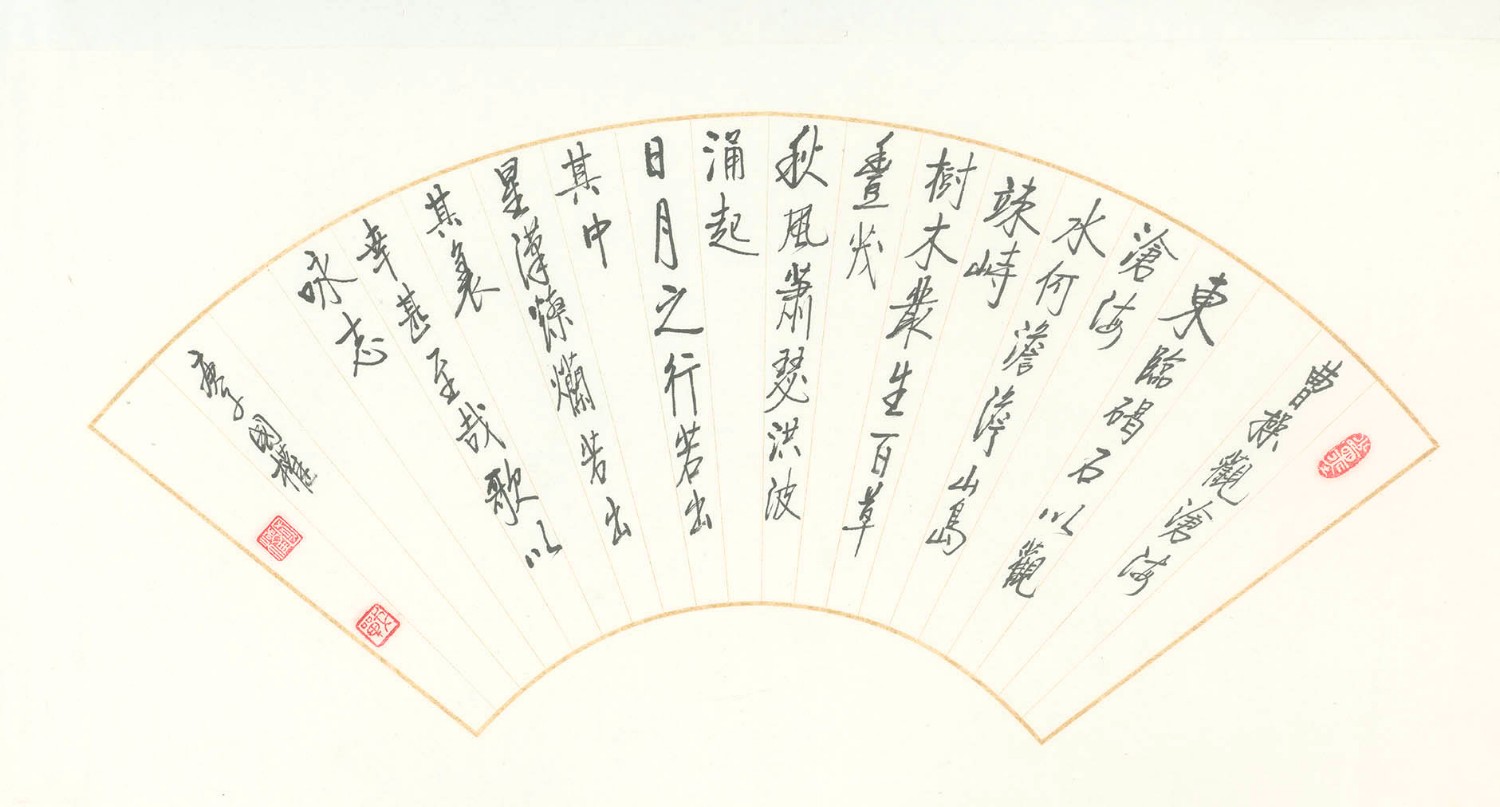 曹操觀滄海
東臨碣石以觀
滄海
水何澹澹山島
竦峙
樹木叢生百草
豐茂
秋風蕭瑟洪波
涌起
日月之行若出
其中
星漢燦爛若出
其裏
幸甚至哉歌以
咏志
庚子國權